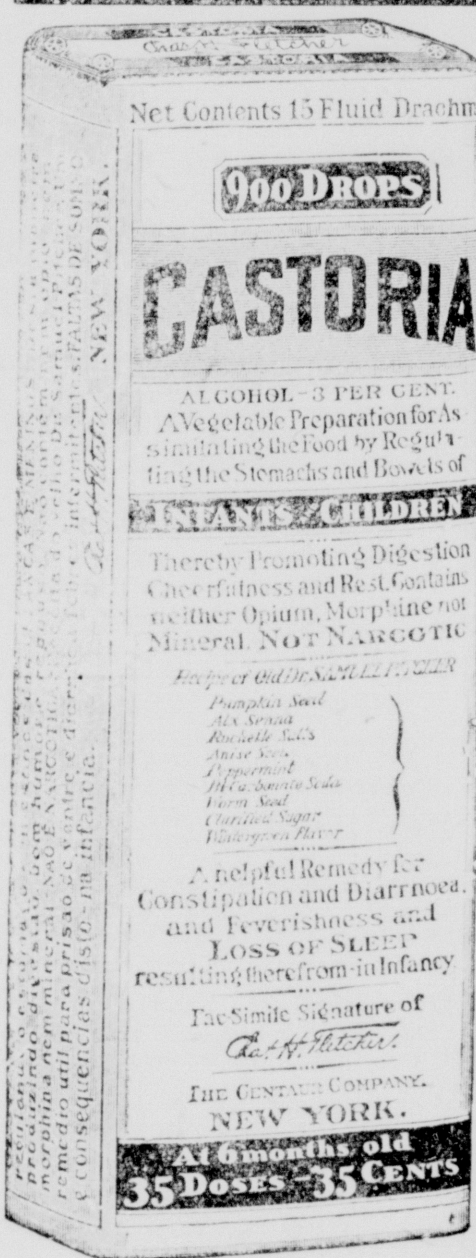 Chas H Fletcher
Net Contents 15 Fluid Drachm
900 DROPS
CASTORIA
ALCOHOL-3 PER CENT.
A Vegetable Preparation for As-
similating the Food by Regula-
ting the Stomachs and Bowels of
INFANTS CHILDREN
Thereby Promoting Digestion
Cheerfulness and Rest. Contains
neither Opium, Morphine not
Mineral. NOT NARCOTIC
Recipe of Old Dr. SAMUEL PITCHER
Pumpkin Seed
Alx Senna
Rochelle Salts
Anise Seed
Peppermint
Bi Carbonate Soda
Worm Seed
Clarified Sugar
Wintergreen Flavor
A helpful Remedy for
Constipation and Diarrhoea.
and Feverishness and
LOSS OF SLEEP
resulting therefrom-in Infancy
Fac-Simile Signature of
Chas. H. Fletcher.
THE CENTAUR COMPANY.
NEW YORK.
At 6 months old
35 DOSES - 35 CENTS
produzindo digestão, bom humor e
morphina nem mineral. NÃO É NARCOTICO
remedio util para prisão de ventre e
e consequencias disto-na infancia.
FALTAS DE SOMNO
Chas H Fletcher NEW YORK.